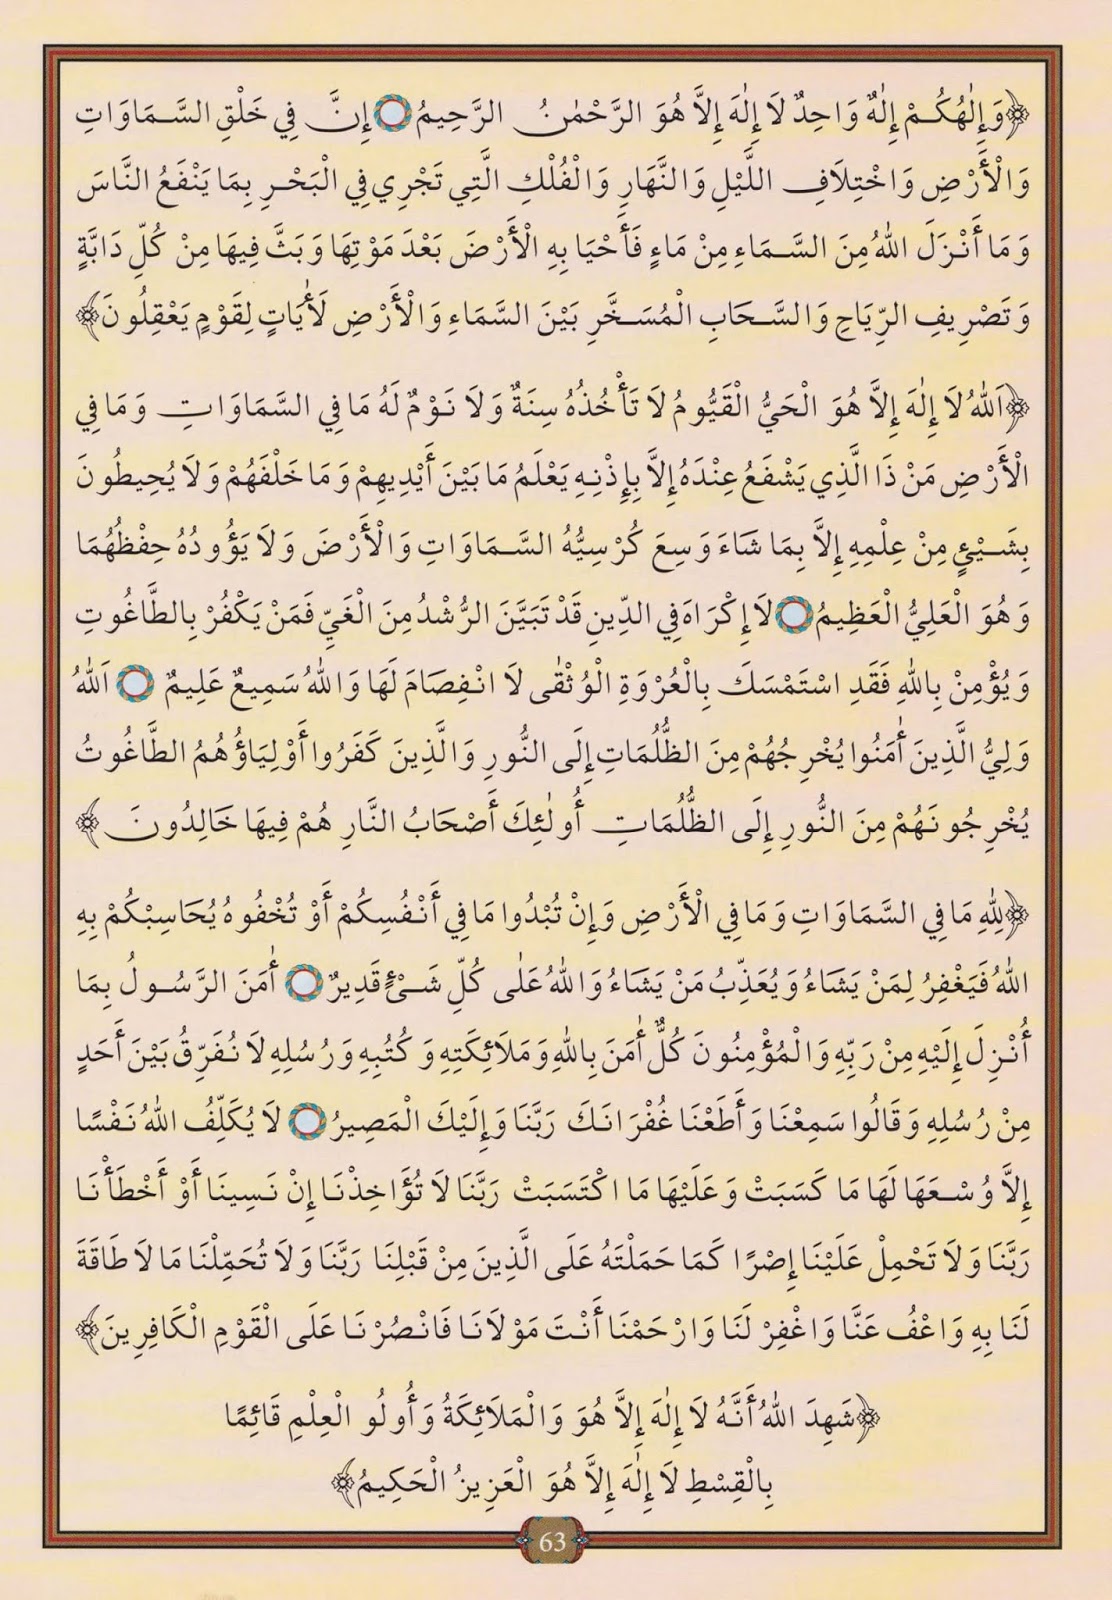 ﴿وَإِلٰهُكُمْ إِلٰهٌ وَاحِدٌ لَا إِلٰهَ إِلَّا هُوَ الرَّحْمٰنُ الرَّحِيمُ إِنَّ فِي خَلْقِ السَّمَاوَاتِ
وَالْأَرْضِ وَاخْتِلَافِ اللَّيْلِ وَالنَّهَارِ وَالْفُلْكِ الَّتِي تَجْرِي فِي الْبَحْرِ بِمَا يَنْفَعُ النَّاسَ
وَمَا أَنْزَلَ اللهُ مِنَ السَّمَاءِ مِنْ مَاءٍ فَأَحْيَا بِهِ الْأَرْضَ بَعْدَ مَوْتِهَا وَبَثَّ فِيهَا مِنْ كُلِّ دَابَّةٍ
وَتَصْرِيفِ الرِّيَاحِ وَالسَّحَابِ الْمُسَخَّرِ بَيْنَ السَّمَاءِ وَالْأَرْضِ لَأٰيَاتٍ لِقَوْمٍ يَعْقِلُونَ﴾
﴿اَللهُ لَا إِلٰهَ إِلَّا هُوَ الْحَيُّ الْقَيُّومُ لَا تَأْخُذُهُ سِنَةٌ وَلَا نَوْمٌ لَهُ مَا فِي السَّمَاوَاتِ وَمَا فِي
الْأَرْضِ مَنْ ذَا الَّذِي يَشْفَعُ عِنْدَهُ إِلَّا بِإِذْنِهِ يَعْلَمُ مَا بَيْنَ أَيْدِيهِمْ وَمَا خَلْفَهُمْ وَلَا يُحِيطُونَ
بِشَيْئٍ مِنْ عِلْمِهِ إِلَّا بِمَا شَاءَ وَسِعَ كُرْسِيُّهُ السَّمَاوَاتِ وَالْأَرْضَ وَلَا يَؤُودُهُ حِفْظُهُمَا
وَهُوَ الْعَلِيُّ الْعَظِيمُ لَا إِكْرَاهَ فِي الدِّينِ قَدْ تَبَيَّنَ الرُّشْدُ مِنَ الْغَيِّ فَمَنْ يَكْفُرْ بِالطَّاغُوتِ
وَيُؤْمِنْ بِاللهِ فَقَدِ اسْتَمْسَكَ بِالْعُرْوَةِ الْوُثْقٰى لَا انْفِصَامَ لَهَا وَاللهُ سَمِيعٌ عَلِيمٌ اَللهُ
وَلِيُّ الَّذِينَ أٰمَنُوا يُخْرِجُهُمْ مِنَ الظُّلُمَاتِ إِلَى النُّورِ وَالَّذِينَ كَفَرُوا أَوْلِيَاؤُهُمُ الطَّاغُوتُ
يُخْرِجُونَهُمْ مِنَ النُّورِ إِلَى الظُّلُمَاتِ أُولٰئِكَ أَصْحَابُ النَّارِ هُمْ فِيهَا خَالِدُونَ﴾
﴿لِلهِ مَا فِي السَّمَاوَاتِ وَمَا فِي الْأَرْضِ وَإِنْ تُبْدُوا مَا فِي أَنْفُسِكُمْ أَوْ تُخْفُوهُ يُحَاسِبْكُمْ بِهِ
اللهُ فَيَغْفِرُ لِمَنْ يَشَاءُ وَيُعَذِّبُ مَنْ يَشَاءُ وَاللهُ عَلٰى كُلِّ شَيْءٍ قَدِيرٌ أٰمَنَ الرَّسُولُ بِمَا
أُنْزِلَ إِلَيْهِ مِنْ رَبِّهِ وَالْمُؤْمِنُونَ كُلٌّ أٰمَنَ بِاللهِ وَمَلَائِكَتِهِ وَكُتُبِهِ وَرُسُلِهِ لَا نُفَرِّقُ بَيْنَ أَحَدٍ
مِنْ رُسُلِهِ وَقَالُوا سَمِعْنَا وَأَطَعْنَا غُفْرَانَكَ رَبَّنَا وَإِلَيْكَ الْمَصِيرُ لَا يُكَلِّفُ اللهُ نَفْسًا
إِلَّا وُسْعَهَا لَهَا مَا كَسَبَتْ وَعَلَيْهَا مَا اكْتَسَبَتْ رَبَّنَا لَا تُؤَاخِذْنَا إِنْ نَسِينَا أَوْ أَخْطَأْنَا
رَبَّنَا وَلَا تَحْمِلْ عَلَيْنَا إِصْرًا كَمَا حَمَلْتَهُ عَلَى الَّذِينَ مِنْ قَبْلِنَا رَبَّنَا وَلَا تُحَمِّلْنَا مَا لَا طَاقَةَ
لَنَا بِهِ وَاعْفُ عَنَّا وَاغْفِرْ لَنَا وَارْحَمْنَا أَنْتَ مَوْلَانَا فَانْصُرْنَا عَلَى الْقَوْمِ الْكَافِرِينَ﴾
﴿شَهِدَ اللهُ أَنَّهُ لَا إِلٰهَ إِلَّا هُوَ وَالْمَلَائِكَةُ وَأُولُو الْعِلْمِ قَائِمًا
بِالْقِسْطِ لَا إِلٰهَ إِلَّا هُوَ الْعَزِيزُ الْحَكِيمُ﴾
63